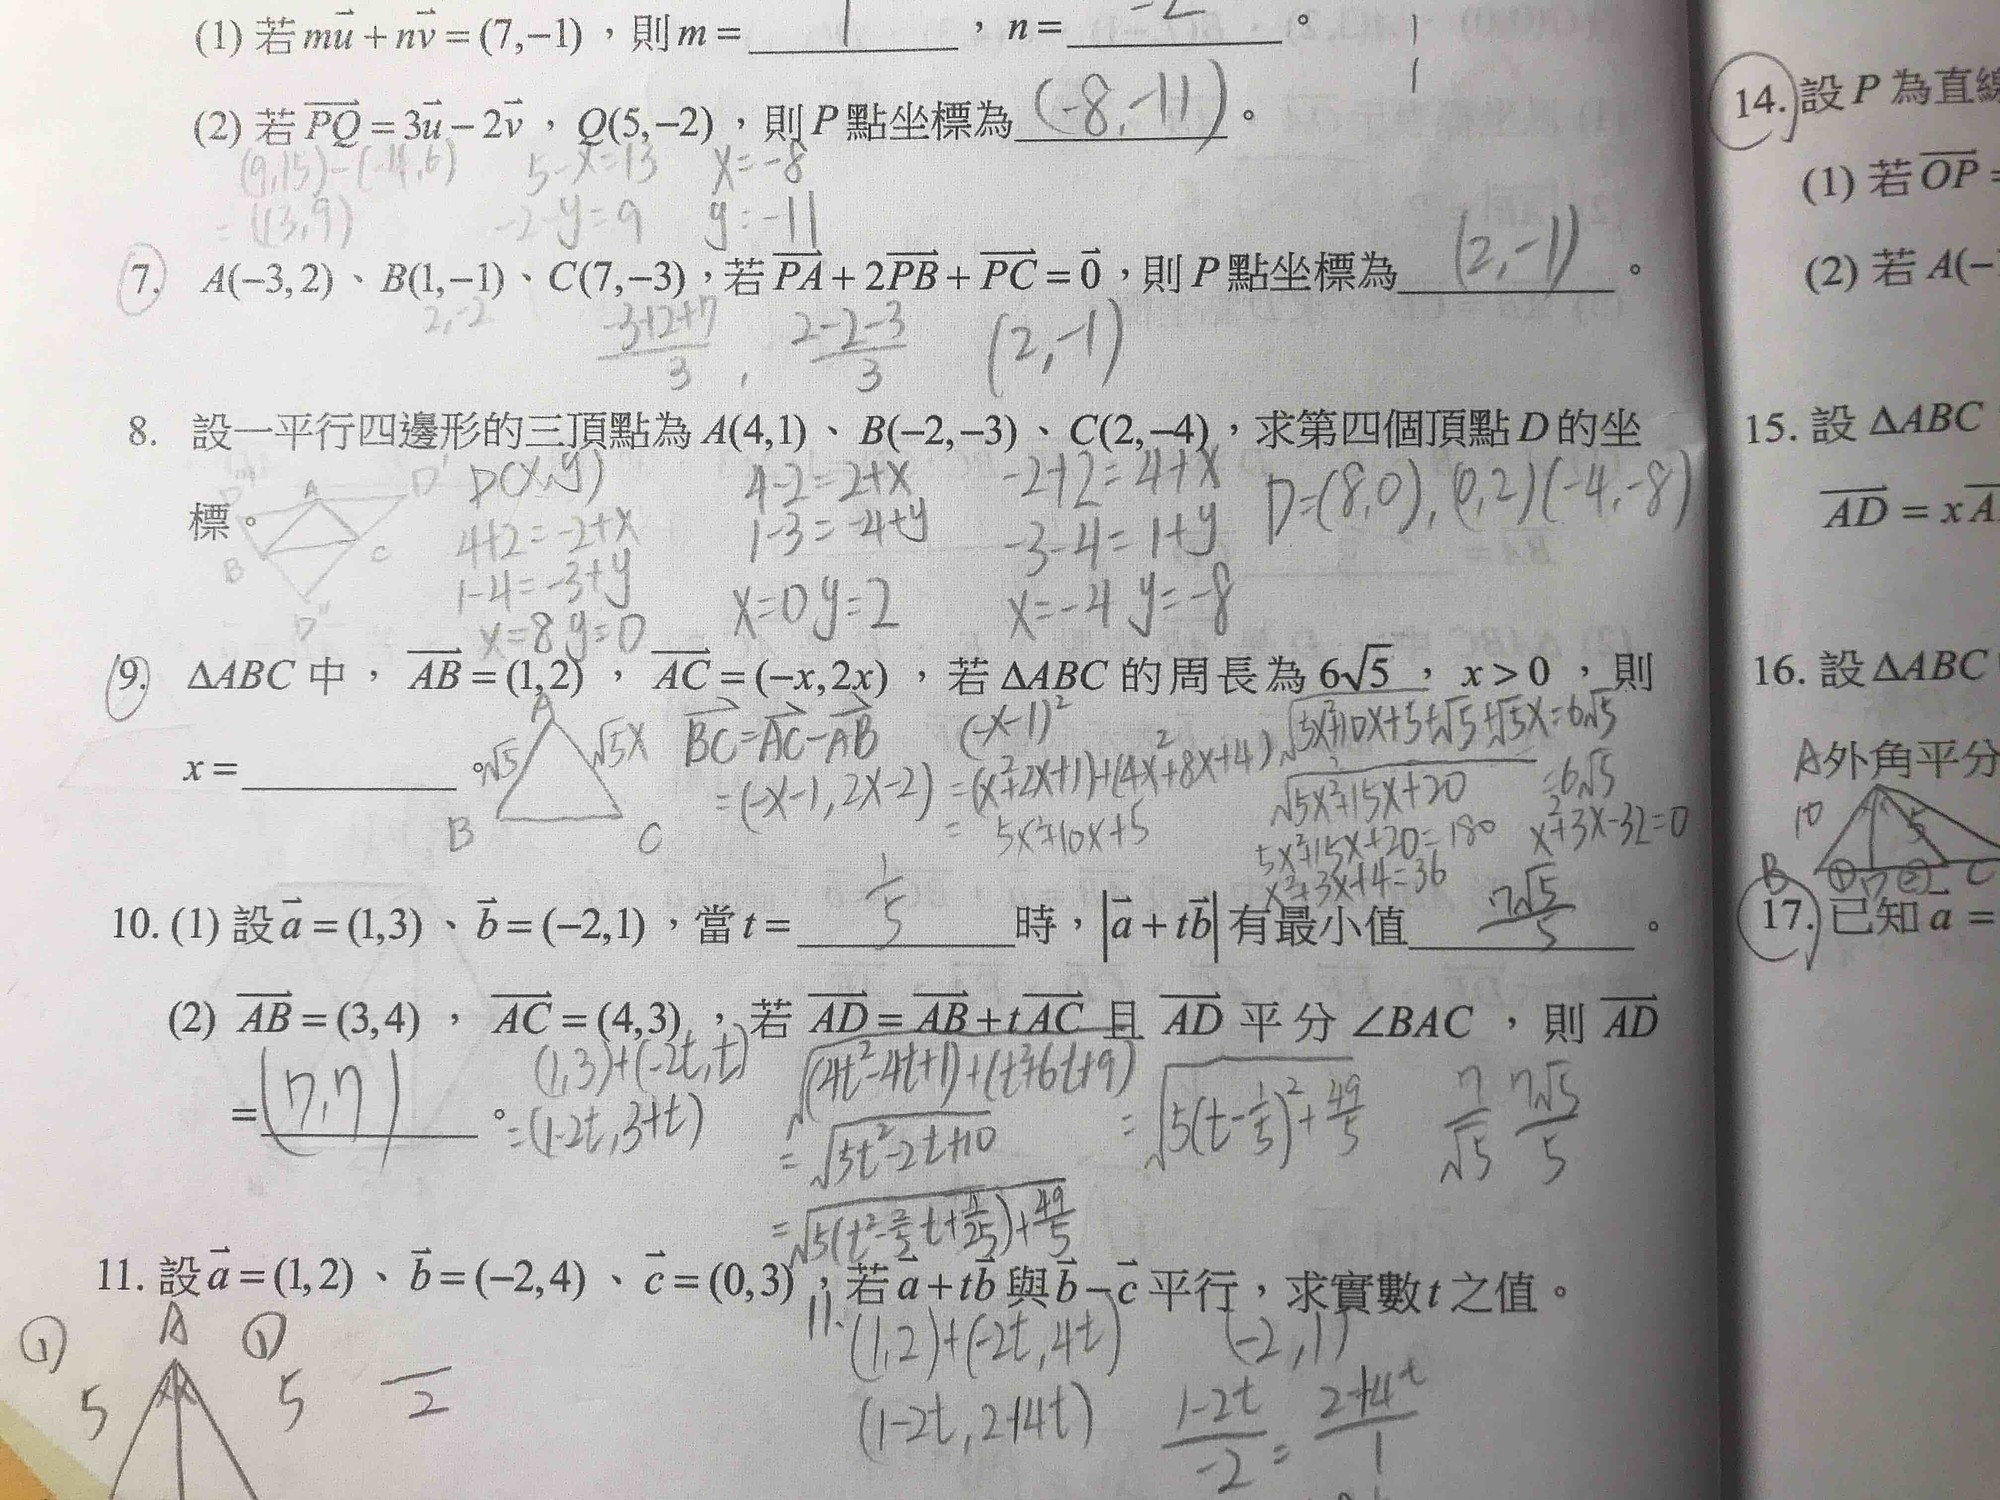 (1) 若 mu + nv = (7,−1),則 m = 1 , n = -2 。
(2) 若 PQ = 3u − 2v , Q(5,−2),則 P 點坐標為 (-8,-11) 。
(9,15)-(-4,6) 5-x=13 x=-8
=(13,9) -2-y=9 y=-11
7. A(−3,2)、B(1,−1)、C(7,−3),若 PA + 2PB + PC = 0,則 P 點坐標為 (2,-1) 。
2,-2 -3+2+7/3 , 2-2-3/3 (2,-1)
8. 設一平行四邊形的三頂點為 A(4,1)、B(−2,−3)、C(2,−4),求第四個頂點 D 的坐
標。
D(x,y) 4-2=2+x -2+2=4+x D=(8,0),(0,2)(-4,-8)
4+2=-2+x 1-3=-4+y -3-4=1+y
1-4=-3+y x=0 y=2 x=-4 y=-8
x=8 y=0
A D' B C D"
9. ΔABC 中, AB = (1,2) , AC = (−x,2x) ,若 ΔABC 的周長為 6√5 , x > 0 ,則
x = 。
A √5 √5x B C
BC=AC-AB (-x-1)² √5x²+10x+5+√5+√5x=6√5
=(-x-1,2x-2) =(x²+2x+1)+(4x²+8x+4) √5x²+15x+20 =6√5
= 5x²+10x+5 5x²+15x+20=180 x²+3x-32=0
x²+3x+4=36
10. (1) 設 a = (1,3)、b = (−2,1),當 t = 1/5 時,|a + tb| 有最小值 7√5/5 。
(2) AB = (3,4) , AC = (4,3) ,若 AD = AB + tAC 且 AD 平分 ∠BAC ,則 AD
= (7,7) 。
(1,3)+(-2t,t) √(4t²-4t+1)+(t²+6t+9) =√5(t-1/5)²+49/5 7/√5 7√5/5
=(1-2t,3+t) =√5t²-2t+10
=√5(t²-2/5t+1/25)+49/5
11. 設 a = (1,2)、b = (−2,4)、c = (0,3),若 a + tb 與 b − c 平行,求實數 t 之值。
11. (1,2)+(-2t,4t) (-2,1)
(1-2t,2+4t) 1-2t/-2 = 2+4t/1
① A ①
5 5 2
14. 設 P 為直線
(1) 若 OP =
(2) 若 A(−
15. 設 ΔABC
AD = xA
16. 設 ΔABC
A外角平分
10 5
B ① D ② C
17. 已知 a =